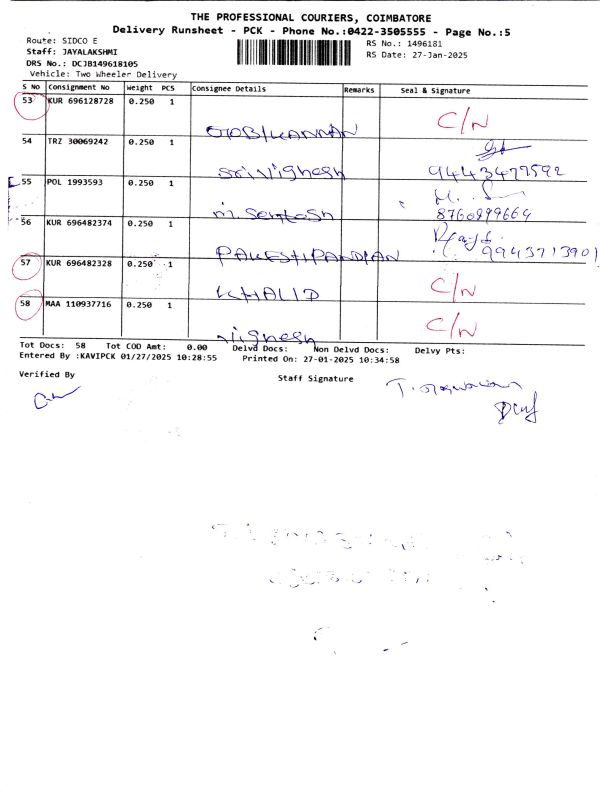 THE PROFESSIONAL COURIERS, COIMBATORE
Delivery Runsheet - PCK - Phone No.:0422-3505555 - Page No.:5
Route: SIDCO E
RS No.: 1496181
Staff: JAYALAKSHMI
RS Date: 27-Jan-2025
DRS No.: DCJB149618105
Vehicle: Two Wheeler Delivery
S No Consignment No Weight PCS Consignee Details Remarks Seal & Signature
53 KUR 696128728 0.250 1 C/N
54 TRZ 30069242 0.250 1
Sri Vighesh 9443477592
55 POL 1993593 0.250 1
M. Santosh 8760899664
56 KUR 696482374 0.250 1
9943713901
57 KUR 696482328 0.250 1
KHALID C/N
58 MAA 110937716 0.250 1
Vighesh C/N
Tot Docs: 58 Tot COD Amt: 0.00 Delvd Docs: Non Delvd Docs: Delvy Pts:
Entered By :KAVIPCK 01/27/2025 10:28:55 Printed On: 27-01-2025 10:34:58
Verified By Staff Signature